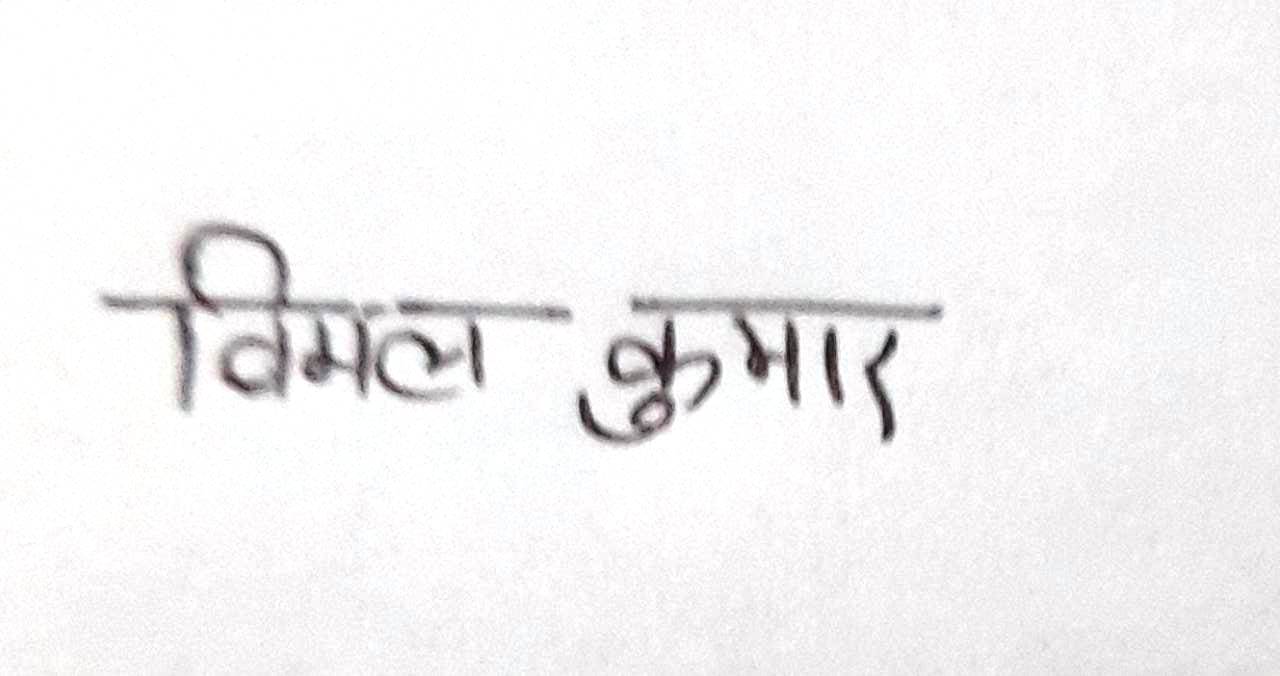 विमल कुमार